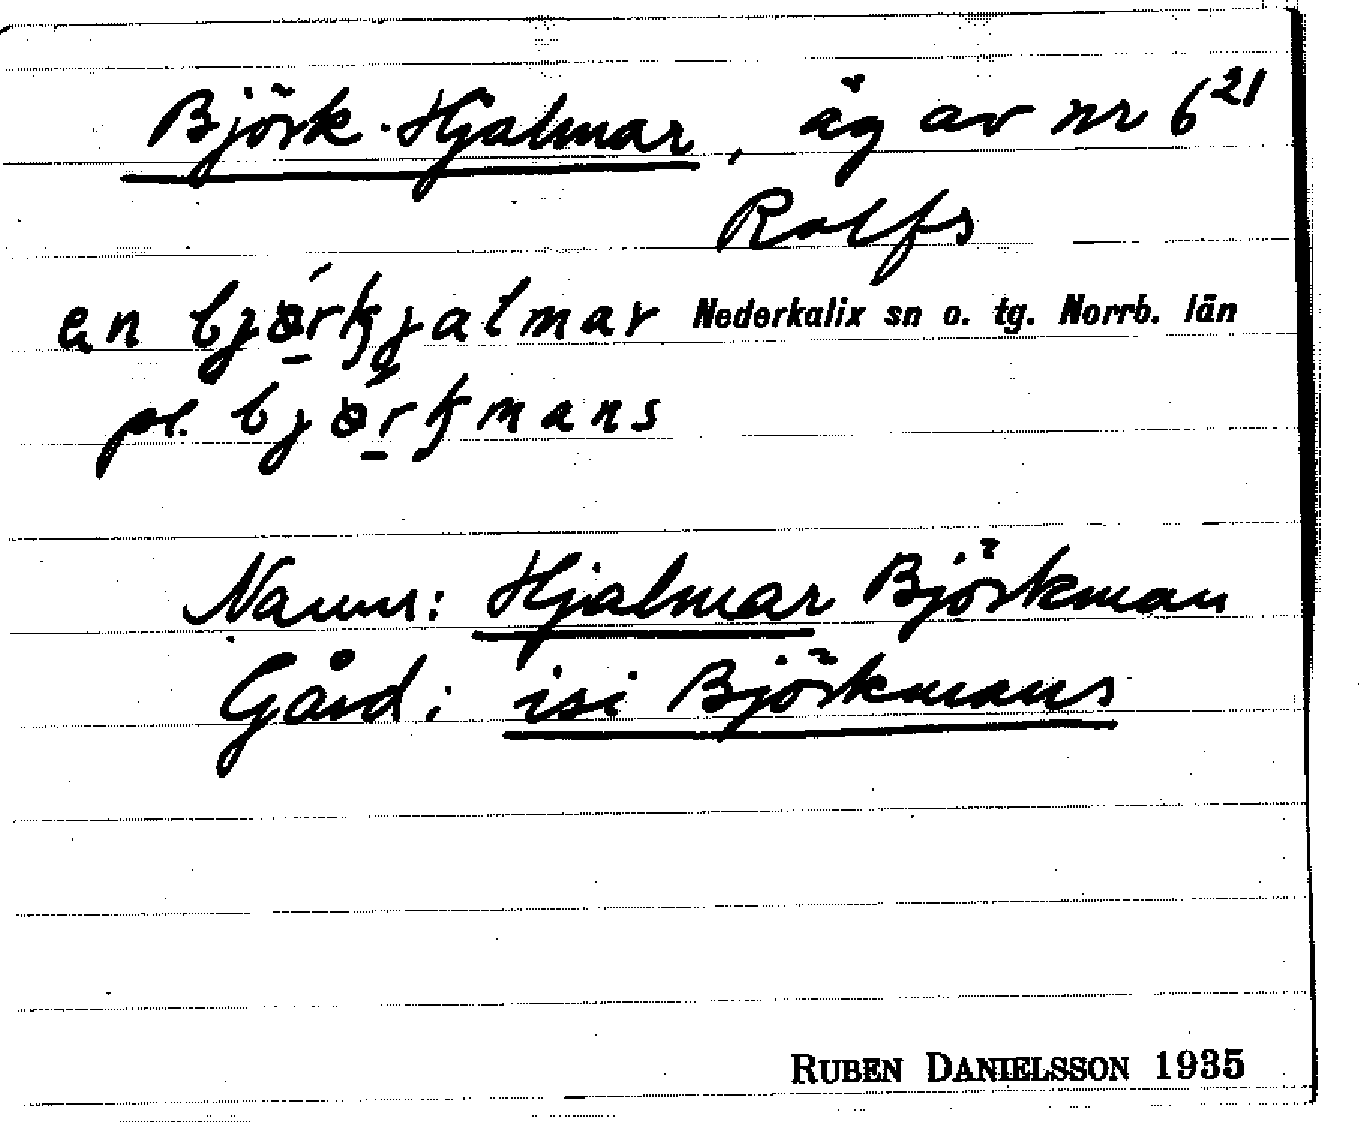 Björk-Hjalmar, äg av nr 6²¹
Rolfs
en bjørkjalmar Nederkalix sn o. tg. Norrb. län
pl. bjørkmans
Namn: Hjalmar Björkman
Gård: isi Björkmans
RUBEN DANIELSSON 1935